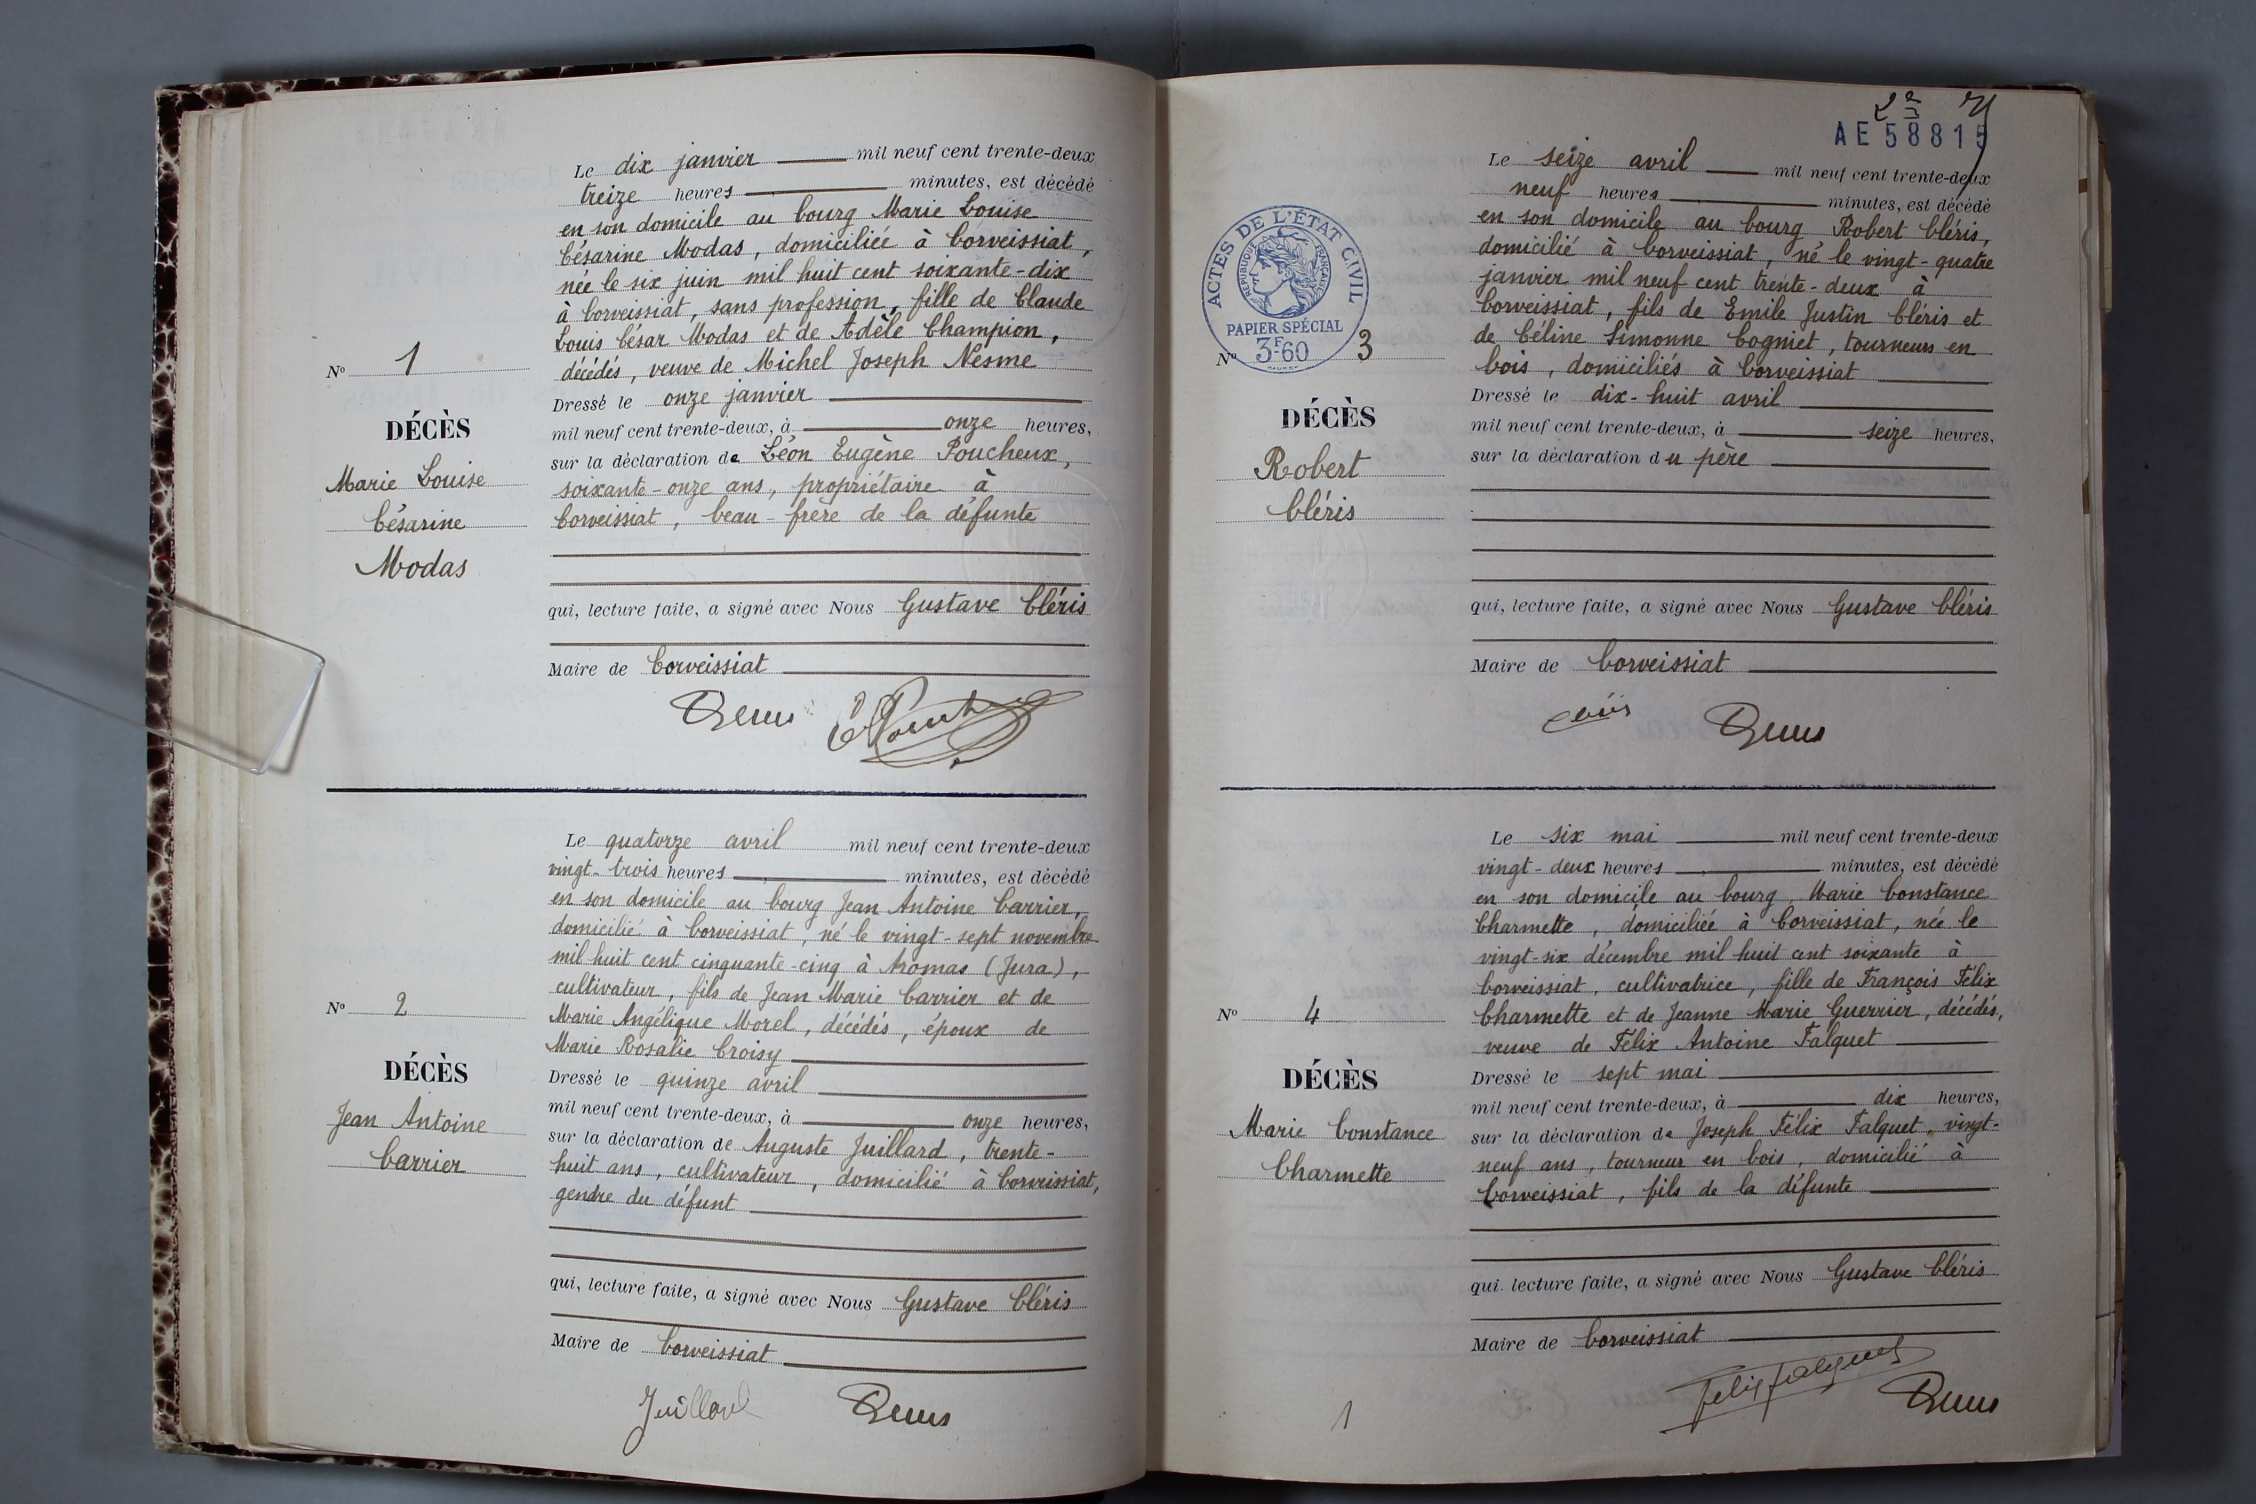 Le dix janvier mil neuf cent trente-deux
treize heures minutes, est décédé
en son domicile au bourg Marie Louise
Césarine Modas, domiciliée à Corveissiat,
née le six juin mil huit cent soixante-dix
à Corveissiat, sans profession, fille de Claude
Louis César Modas et de Adèle Champion,
décédés, veuve de Michel Joseph Nesme
Dressé le onze janvier
mil neuf cent trente-deux, à onze heures,
sur la déclaration de Léon Eugène Poucheux,
soixante-onze ans, propriétaire à
Corveissiat, beau-frère de la défunte
qui, lecture faite, a signé avec Nous Gustave Cléris
Maire de Corveissiat
N° 1
DÉCÈS
Marie Louise
Césarine
Modas
Le quatorze avril mil neuf cent trente-deux
vingt-trois heures minutes, est décédé
en son domicile au bourg Jean Antoine Carrier,
domicilié à Corveissiat, né le vingt-sept novembre
mil huit cent cinquante-cinq à Aromas (Jura),
cultivateur, fils de Jean Marie Carrier et de
Marie Angélique Morel, décédés, époux de
Marie Rosalie Croisy
Dressé le quinze avril
mil neuf cent trente-deux, à onze heures,
sur la déclaration de Auguste Juillard, trente-
huit ans, cultivateur, domicilié à Corveissiat,
gendre du défunt
qui, lecture faite, a signé avec Nous Gustave Cléris
Maire de Corveissiat
Juillard
N° 2
DÉCÈS
Jean Antoine
Carrier
AE 58815
Le seize avril mil neuf cent trente-deux
neuf heures minutes, est décédé
en son domicile au bourg Robert Cléris,
domicilié à Corveissiat, né le vingt-quatre
janvier mil neuf cent trente-deux à
Corveissiat, fils de Emile Justin Cléris et
de Céline Simonne Cogniet, tourneurs en
bois, domiciliés à Corveissiat
Dressé le dix-huit avril
mil neuf cent trente-deux, à seize heures,
sur la déclaration du père
qui, lecture faite, a signé avec Nous Gustave Cléris
Maire de Corveissiat
ACTES DE L'ÉTAT CIVIL
RÉPUBLIQUE FRANÇAISE
PAPIER SPÉCIAL
3F60
N° 3
DÉCÈS
Robert
Cléris
Le six mai mil neuf cent trente-deux
vingt-deux heures minutes, est décédé
en son domicile au bourg, Marie Constance
Charmette, domiciliée à Corveissiat, née le
vingt-six décembre mil huit cent soixante à
Corveissiat, cultivatrice, fille de François Félix
Charmette et de Jeanne Marie Guerrier, décédés,
veuve de Félix Antoine Falquet
Dressé le sept mai
mil neuf cent trente-deux, à dix heures,
sur la déclaration de Joseph Félix Falquet, vingt-
neuf ans, tourneur en bois, domicilié à
Corveissiat, fils de la défunte
qui lecture faite, a signé avec Nous Gustave Cléris
Maire de Corveissiat
Felix Falquet
N° 4
DÉCÈS
Marie Constance
Charmette
1